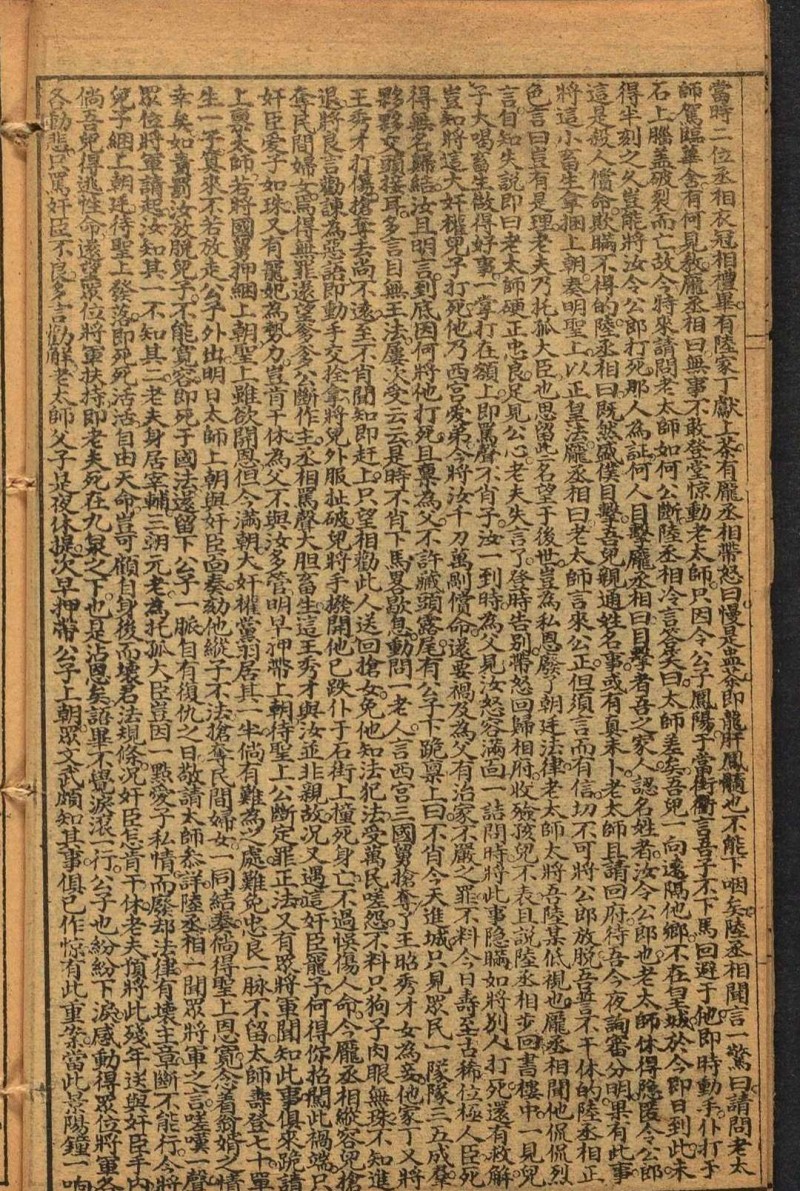 當時二位丞相衣冠相禮畢有陸家丁獻上茶有龐丞相帶怒曰慢是蠱茶即龍肝鳳髓也不能下咽矣陸丞相聞言一驚曰請問老太
師駕臨華舍有何見教龐丞相曰無事不敢登堂惊動老太師只因令公子鳳陽于當街衢言吾子不下馬回避于他即時動手仆打于
石上腦盖破裂而亡故今特來請問老太師如何公斷陸丞相冷言答笑曰太師差矣吾兒一向遠隔他鄉不在皇城於今即日到此未
得半刻之久豈能將汝令公郎打死那人為証何人目擊龐丞相曰目擊者吾之家人認名姓者汝令公郎也老太師休得隐匿令公郎
這是殺人償命欺瞞不得的陸丞相曰既然盛僕目擊吾兒親通姓名事或有真未卜老太師且請回府待吾今夜詢審分明果有此事
將這小畜生拿捆上朝奏明聖上以正皇法龐丞相曰老太師言來公正但須言而有信切不可將公郎放脫吾誓不干休的陸丞相正
色言曰豈有是理老夫乃托孤大臣也思留此名望于後世豈為私恩廢了朝廷法律老太師太將吾陸某低視也龐丞相聞他侃侃烈
言自知失說即曰老太師硬正忠良足見公心老夫失言了登時告別帶怒回歸相府收殮孩兒不表且說陸丞相步回書樓中一見兒
子大喝畜生做得好事一掌打在額上即罵聲不肖子汝一到時為父見汝怒容滿面一詰問時將此事隐瞞如將別人打死還有救解
豈知將這大奸權兒子打死他乃西宮愛弟今將汝千刀萬剮償命還要禍及為父有治家不嚴之罪不料今日壽至古稀位極人臣死
得無名歸結汝且明言到底因何將他打死且稟為父不許藏頭露尾有公子下跪稟上曰不肖今天進城只見眾民一隊隊三五成群
夥夥交頭接耳多言目無王法屢次受云云是時不肖下馬畧歇息動問一老人言西宮三國舅搶奪了王昭秀才女為妾他家丁又將
王秀才打傷搶奪去尚不遠至不肖聞知即赶上只望相勸此人送回搶女免他知法犯法受萬民嗟怨不料只狗子肉眼無珠不知進
退將良言勸諫為惡語即動手交拴拿將兒外服扯破兒將手撥開他已跌仆于石街上撞死身亡不過悞傷人命今龐丞相縱容兒搶
奪民間婦女焉得無罪還望爹爹公斷作主丞相罵聲大胆畜生這王秀才與汝並非親故况又遇這奸臣寵子何得你招攬此禍端只
奸臣愛子如珠又有寵妃為勢力豈肯干休為父不與汝多管明早押帶上朝待聖上公斷定罪正法又有眾將軍聞知此事俱來跪請
上稟太師若將國舅抑綑上朝聖上雖欲開恩但今滿朝大奸權黨羽居其一半倘有難為少處難免忠良一脉不留太師壽登七十單
生一子莫來不若放走公子外出明日太師上朝與奸臣面奏劾他縱子不法搶奪民間婦女一同結奏倘得聖上恩寬念着翁婿之情
幸矣如責罰汝放脫兒子不能寬容即死于國法還留下公子一脈自有復仇之日敬請太師恭詳陸丞相一聞眾將軍之言嗟嘆一聲
眾位將軍請起汝知其一不知其二老夫身居宰輔三朝元老為托孤大臣豈因一點愛子私情而廢却法律有壞主章斷不能行今將
兒子綑上朝廷待聖上發落即死死活活自由天命豈可顧自身後而壞君法規條况奸臣怎肯干休老夫預將此殘年送與奸臣手內
倘吾兒得逃性命還望眾位將軍扶持即老夫死在九泉之下也是沾恩矣語畢不覺淚滾一行公子也紛紛下淚感動得眾位將軍各
各動悲只罵奸臣不良多言勸解老太師父子是夜休提次早押帶公子上朝眾文武頗知其事俱已作惊有此重案當此景陽鐘一响